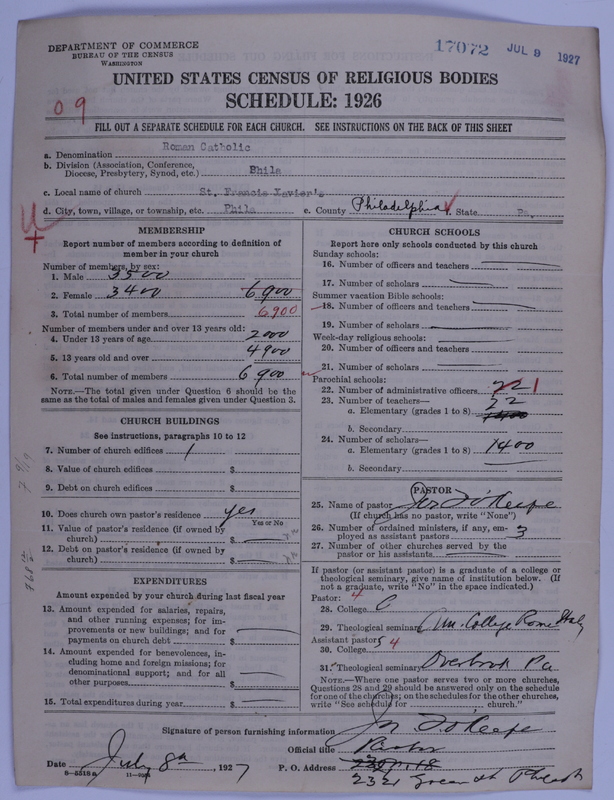 DEPARTMENT OF COMMERCE
BUREAU OF THE CENSUS
WASHINGTON
17072 JUL 9 1927
UNITED STATES CENSUS OF RELIGIOUS BODIES
SCHEDULE: 1926
0 9
FILL OUT A SEPARATE SCHEDULE FOR EACH CHURCH. SEE INSTRUCTIONS ON THE BACK OF THIS SHEET
a. Denomination Roman Catholic
b. Division (Association, Conference, Diocese, Presbytery, Synod, etc.) Phila
c. Local name of church St. Francis Xavier's
d. City, town, village, or township, etc. Phila e. County Philadelphia f. State Pa.
MEMBERSHIP
Report number of members according to definition of
member in your church
Number of members, by sex:
1. Male 3500
2. Female 3400 6900
3. Total number of members 6900
Number of members under and over 13 years old:
4. Under 13 years of age 2000
5. 13 years old and over 4900
6. Total number of members 6900
NOTE.—The total given under Question 6 should be the
same as the total of males and females given under Question 3.
CHURCH BUILDINGS
See instructions, paragraphs 10 to 12
7. Number of church edifices 1
8. Value of church edifices $
9. Debt on church edifices $
10. Does church own pastor's residence? yes
Yes or No
11. Value of pastor's residence (if owned by
church) $
12. Debt on pastor's residence (if owned by
church) $
EXPENDITURES
Amount expended by your church during last fiscal year
13. Amount expended for salaries, repairs,
and other running expenses; for im-
provements or new buildings; and for
payments on church debt $
14. Amount expended for benevolences, in-
cluding home and foreign missions; for
denominational support; and for all
other purposes $
15. Total expenditures during year $
CHURCH SCHOOLS
Report here only schools conducted by this church
Sunday schools:
16. Number of officers and teachers
17. Number of scholars
Summer vacation Bible schools:
18. Number of officers and teachers
19. Number of scholars
Week-day religious schools:
20. Number of officers and teachers
21. Number of scholars
Parochial schools:
22. Number of administrative officers 1
23. Number of teachers—
a. Elementary (grades 1 to 8) 22
b. Secondary
24. Number of scholars—
a. Elementary (grades 1 to 8) 1400
b. Secondary
PASTOR
25. Name of pastor Jos F O'Keefe
(If church has no pastor, write "None")
26. Number of ordained ministers, if any, em-
ployed as assistant pastors 3
27. Number of other churches served by the
pastor or his assistants
If pastor (or assistant pastor) is a graduate of a college or
theological seminary, give name of institution below. (If
not a graduate, write "No" in the space indicated.)
Pastor: 4
28. College C
29. Theological seminary Am. College Rome Italy
Assistant pastor: 4
30. College
31. Theological seminary Overbrook Pa
NOTE.—Where one pastor serves two or more churches,
Questions 28 and 29 should be answered only on the schedule
for one of the churches; on the schedules for the other churches,
write "See schedule for church."
Signature of person furnishing information Jos F O'Keefe
Official title Pastor
Date July 8th, 1927 P. O. Address
2321 Green St Phila Pa
8-5518a